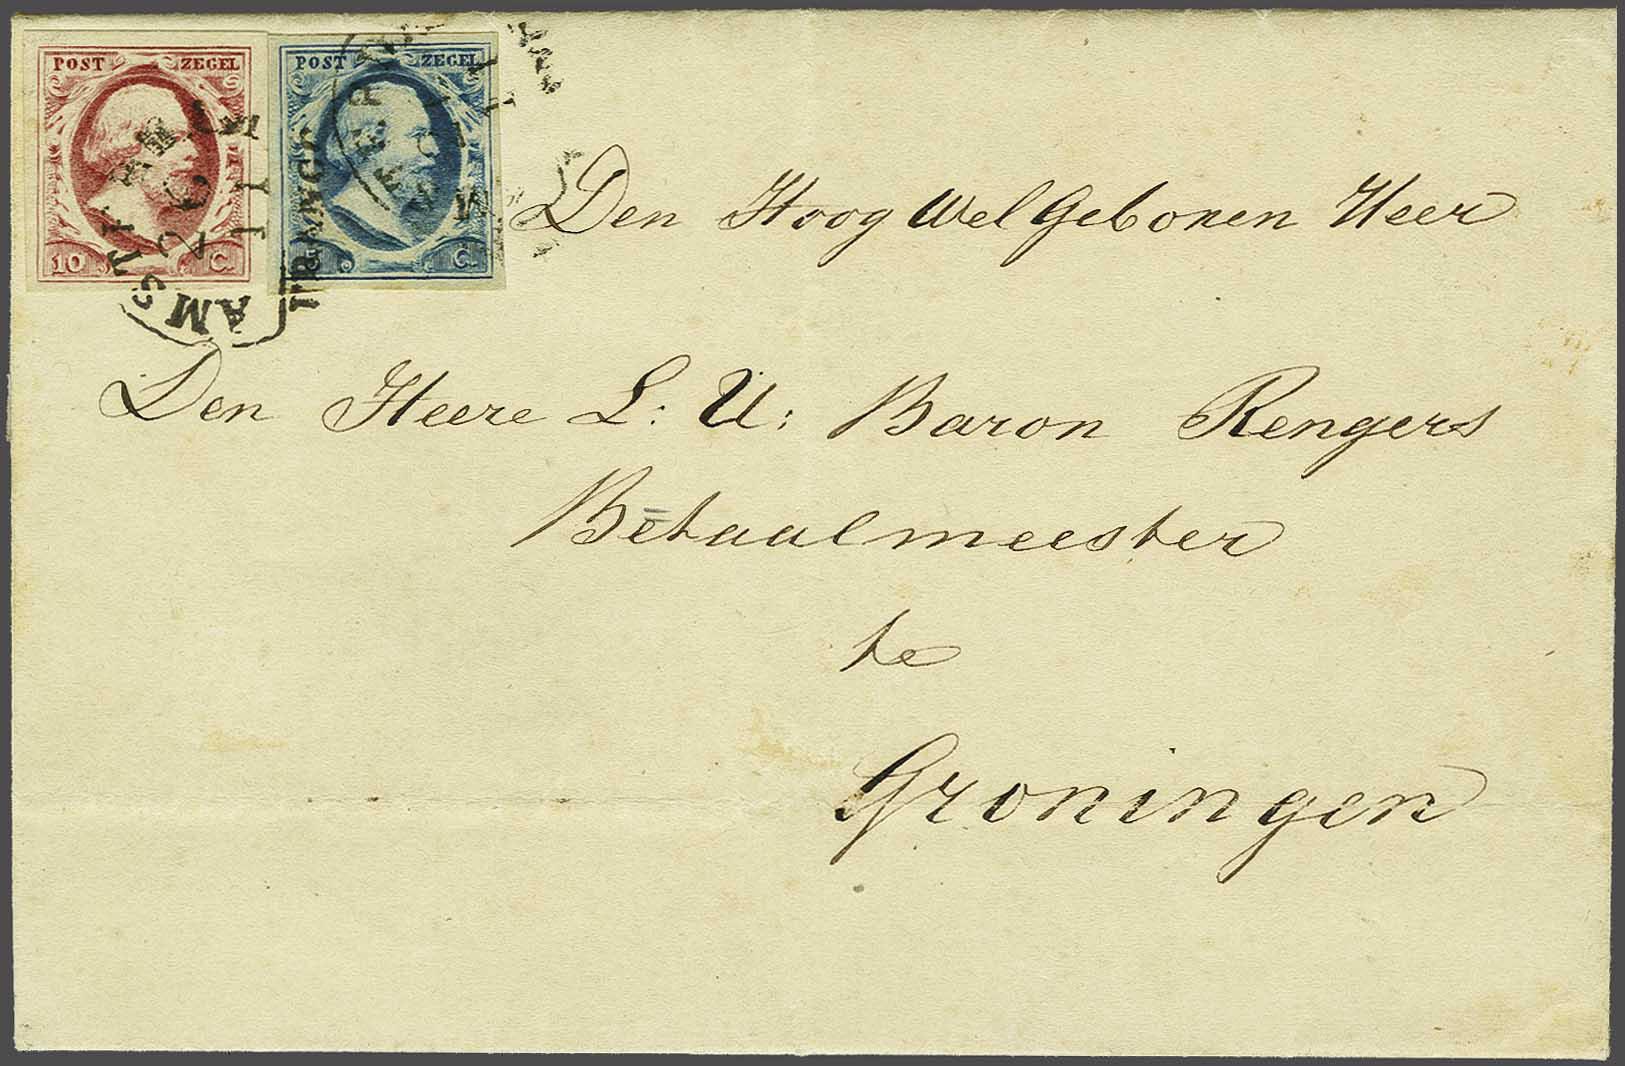 POST ZEGEL POST ZEGEL
10 C. C.
AMSTERDAM
FRANCO
Den HoogWelGeboren Heer
Den Heere L: U: Baron Rengers
Betaalmeester
te
Groningen